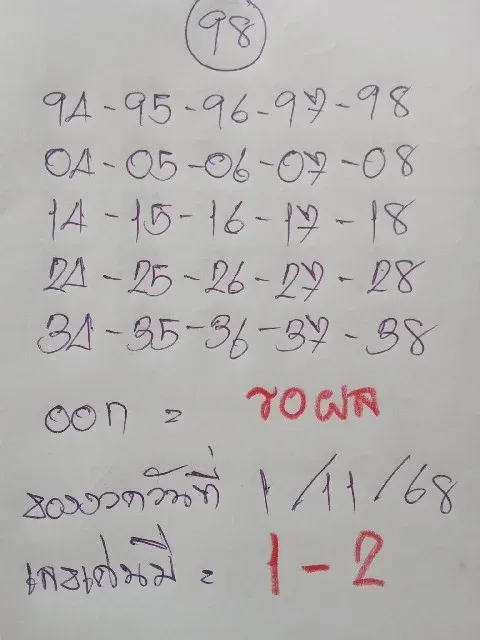 98
94-95-96-97-98
04-05-06-07-08
14-15-16-17-18
24-25-26-27-28
34-35-36-37-38
ออก = รอผล
ของงวดวันที่ 1/11/68
เลขเด่นมี = 1-2